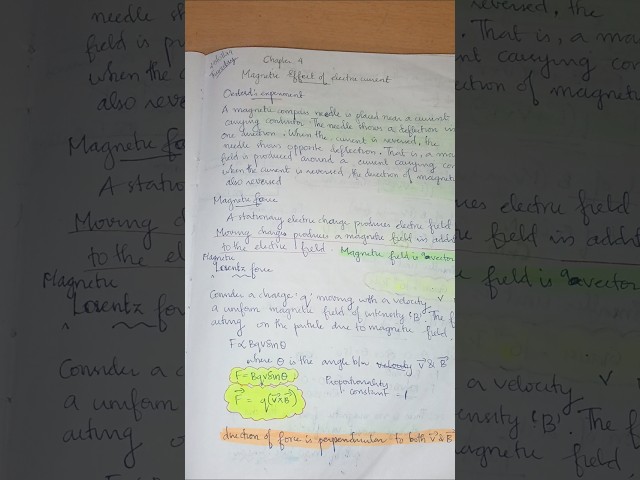 Chapter 4
Magnetic effect of electric current
Oersted's experiment
A magnetic compass needle is placed near a current
carrying conductor. The needle shows a deflection in
one direction. When the current is reversed, the
needle shows opposite deflection. That is, a ma
field is produced around a current carrying con
when the current is reversed, the direction of magnet
also reversed
Magnetic force
A stationary electric charge produces electric field
Moving charges produces a magnetic field in addi
to the electric field. Magnetic field is a vector
Magnetic
Lorentz force
Consider a charge 'q' moving with a velocity v
a uniform magnetic field of intensity 'B'. The f
acting on the particle due to magnetic field
F ∝ BqvSinθ
where θ is the angle b/w velocity v⃗ & B⃗
F = BqvSinθ
Proportionality
constant = 1
F⃗ = q(v⃗×B⃗)
direction of force is perpendicular to both v⃗ & B⃗